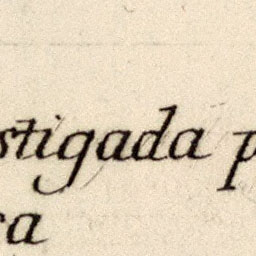 stigada p
ca